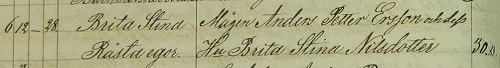 6 12 – 28. Brita Stina Mågen Anders Petter Ersson och dess
Rästa egor. Hu Brita Stina Nilsdotter 30.